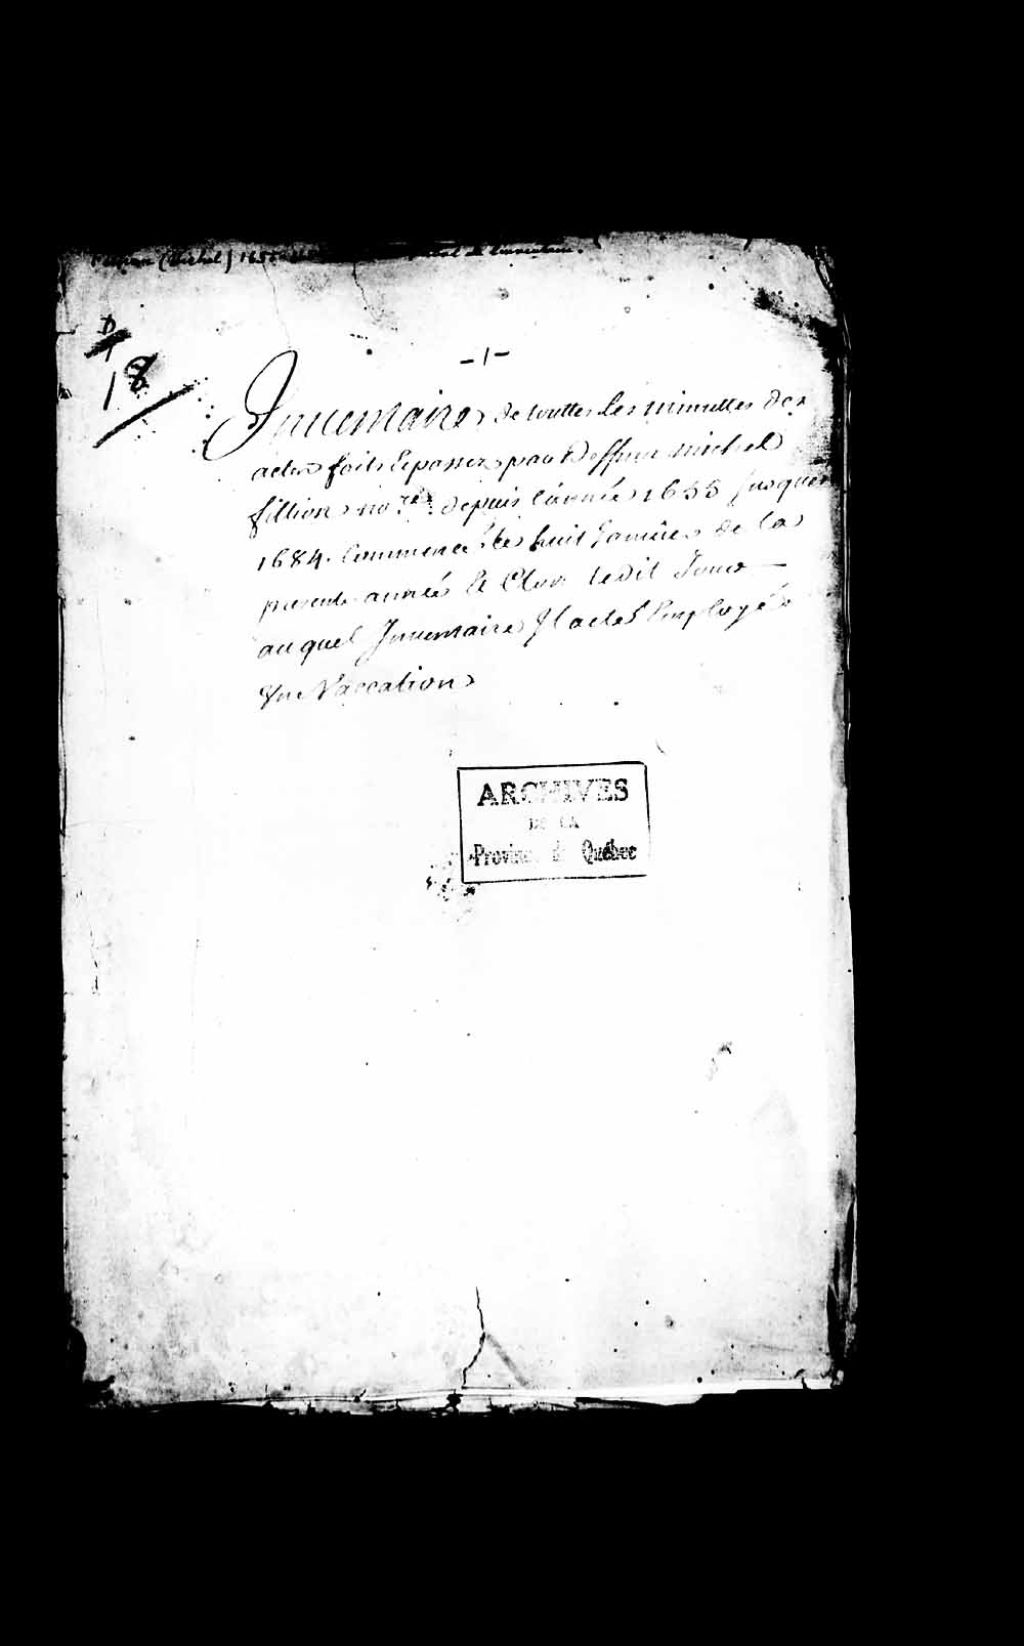 (Michel) 1655
D
1
18
-1-
Inuentaire de touttes les minuttes des
actes faits & passez par Deffunt michel
fillion no.re depuis l'année 1655 Jusques
1684. Commencé le huit Januier de la
presente année & Clos ledit Jour
auquel Inuentaire Jl a esté Employé
Vne Vaccation
ARCHIVES
DE LA
Province de Québec